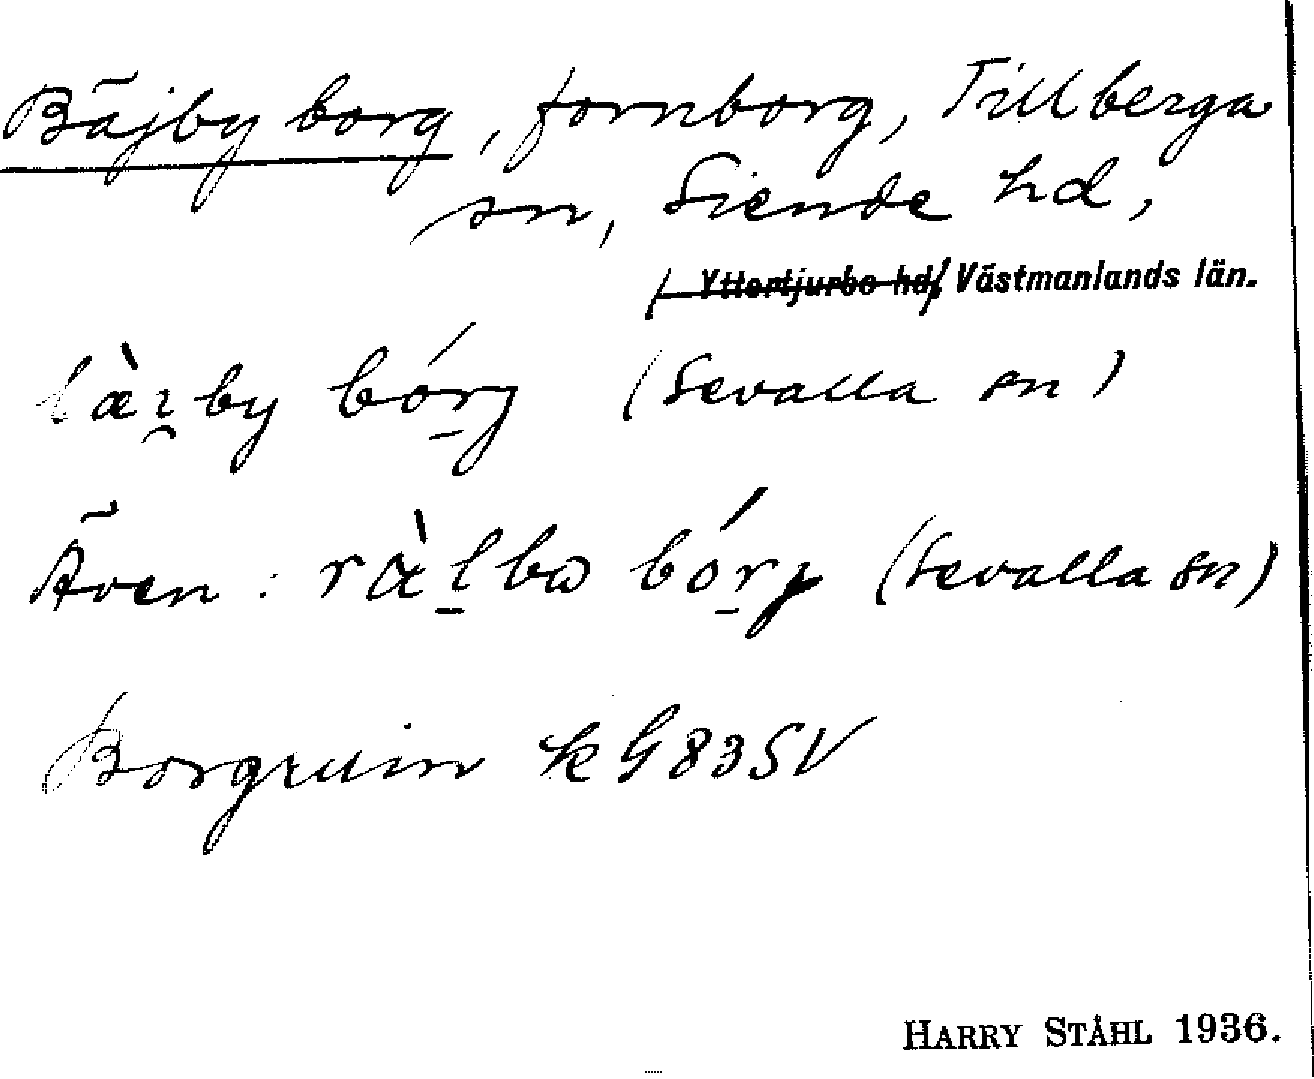 Bäjby borg, fornborg, Tillberga
sn, Siende hd,
Yttertjurbo hd, Västmanlands län.
by bórg (Sevalla sn)
Även: ràlbω bórg (Sevalla sn)
Borgruin k G83SV
HARRY STÅHL 1936.